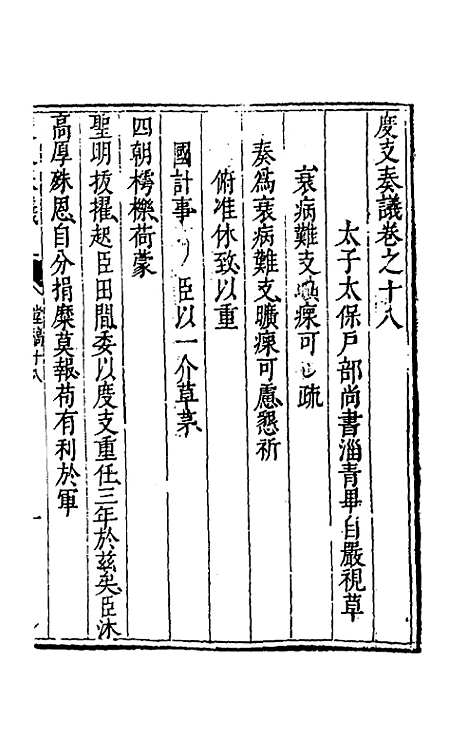 度支奏議卷之十八
太子太保戶部尚書淄青畢自嚴視草
衰病難支曠瘝可 疏
奏爲衰病難支曠瘝可慮懇祈
俯准休致以重
國計事 臣以一介草茅
四朝樗櫟荷蒙
聖明拔擢起臣田間委以度支重任三年於茲矣臣沐
高厚殊恩自分捐糜莫報苟有利於軍
堂稿十八 一